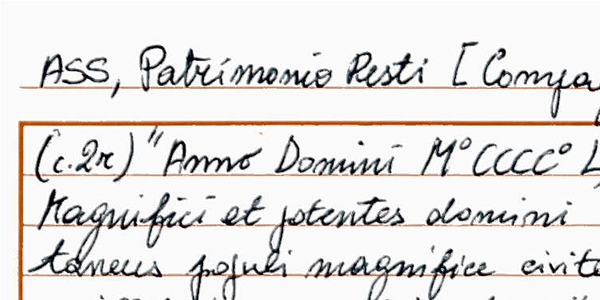 ASS, Patrimonio Resti [Compa
(c.2r) "Anno Domini M°CCCC° L
Magnifici et potentes domini
taneus populi magnifice civita